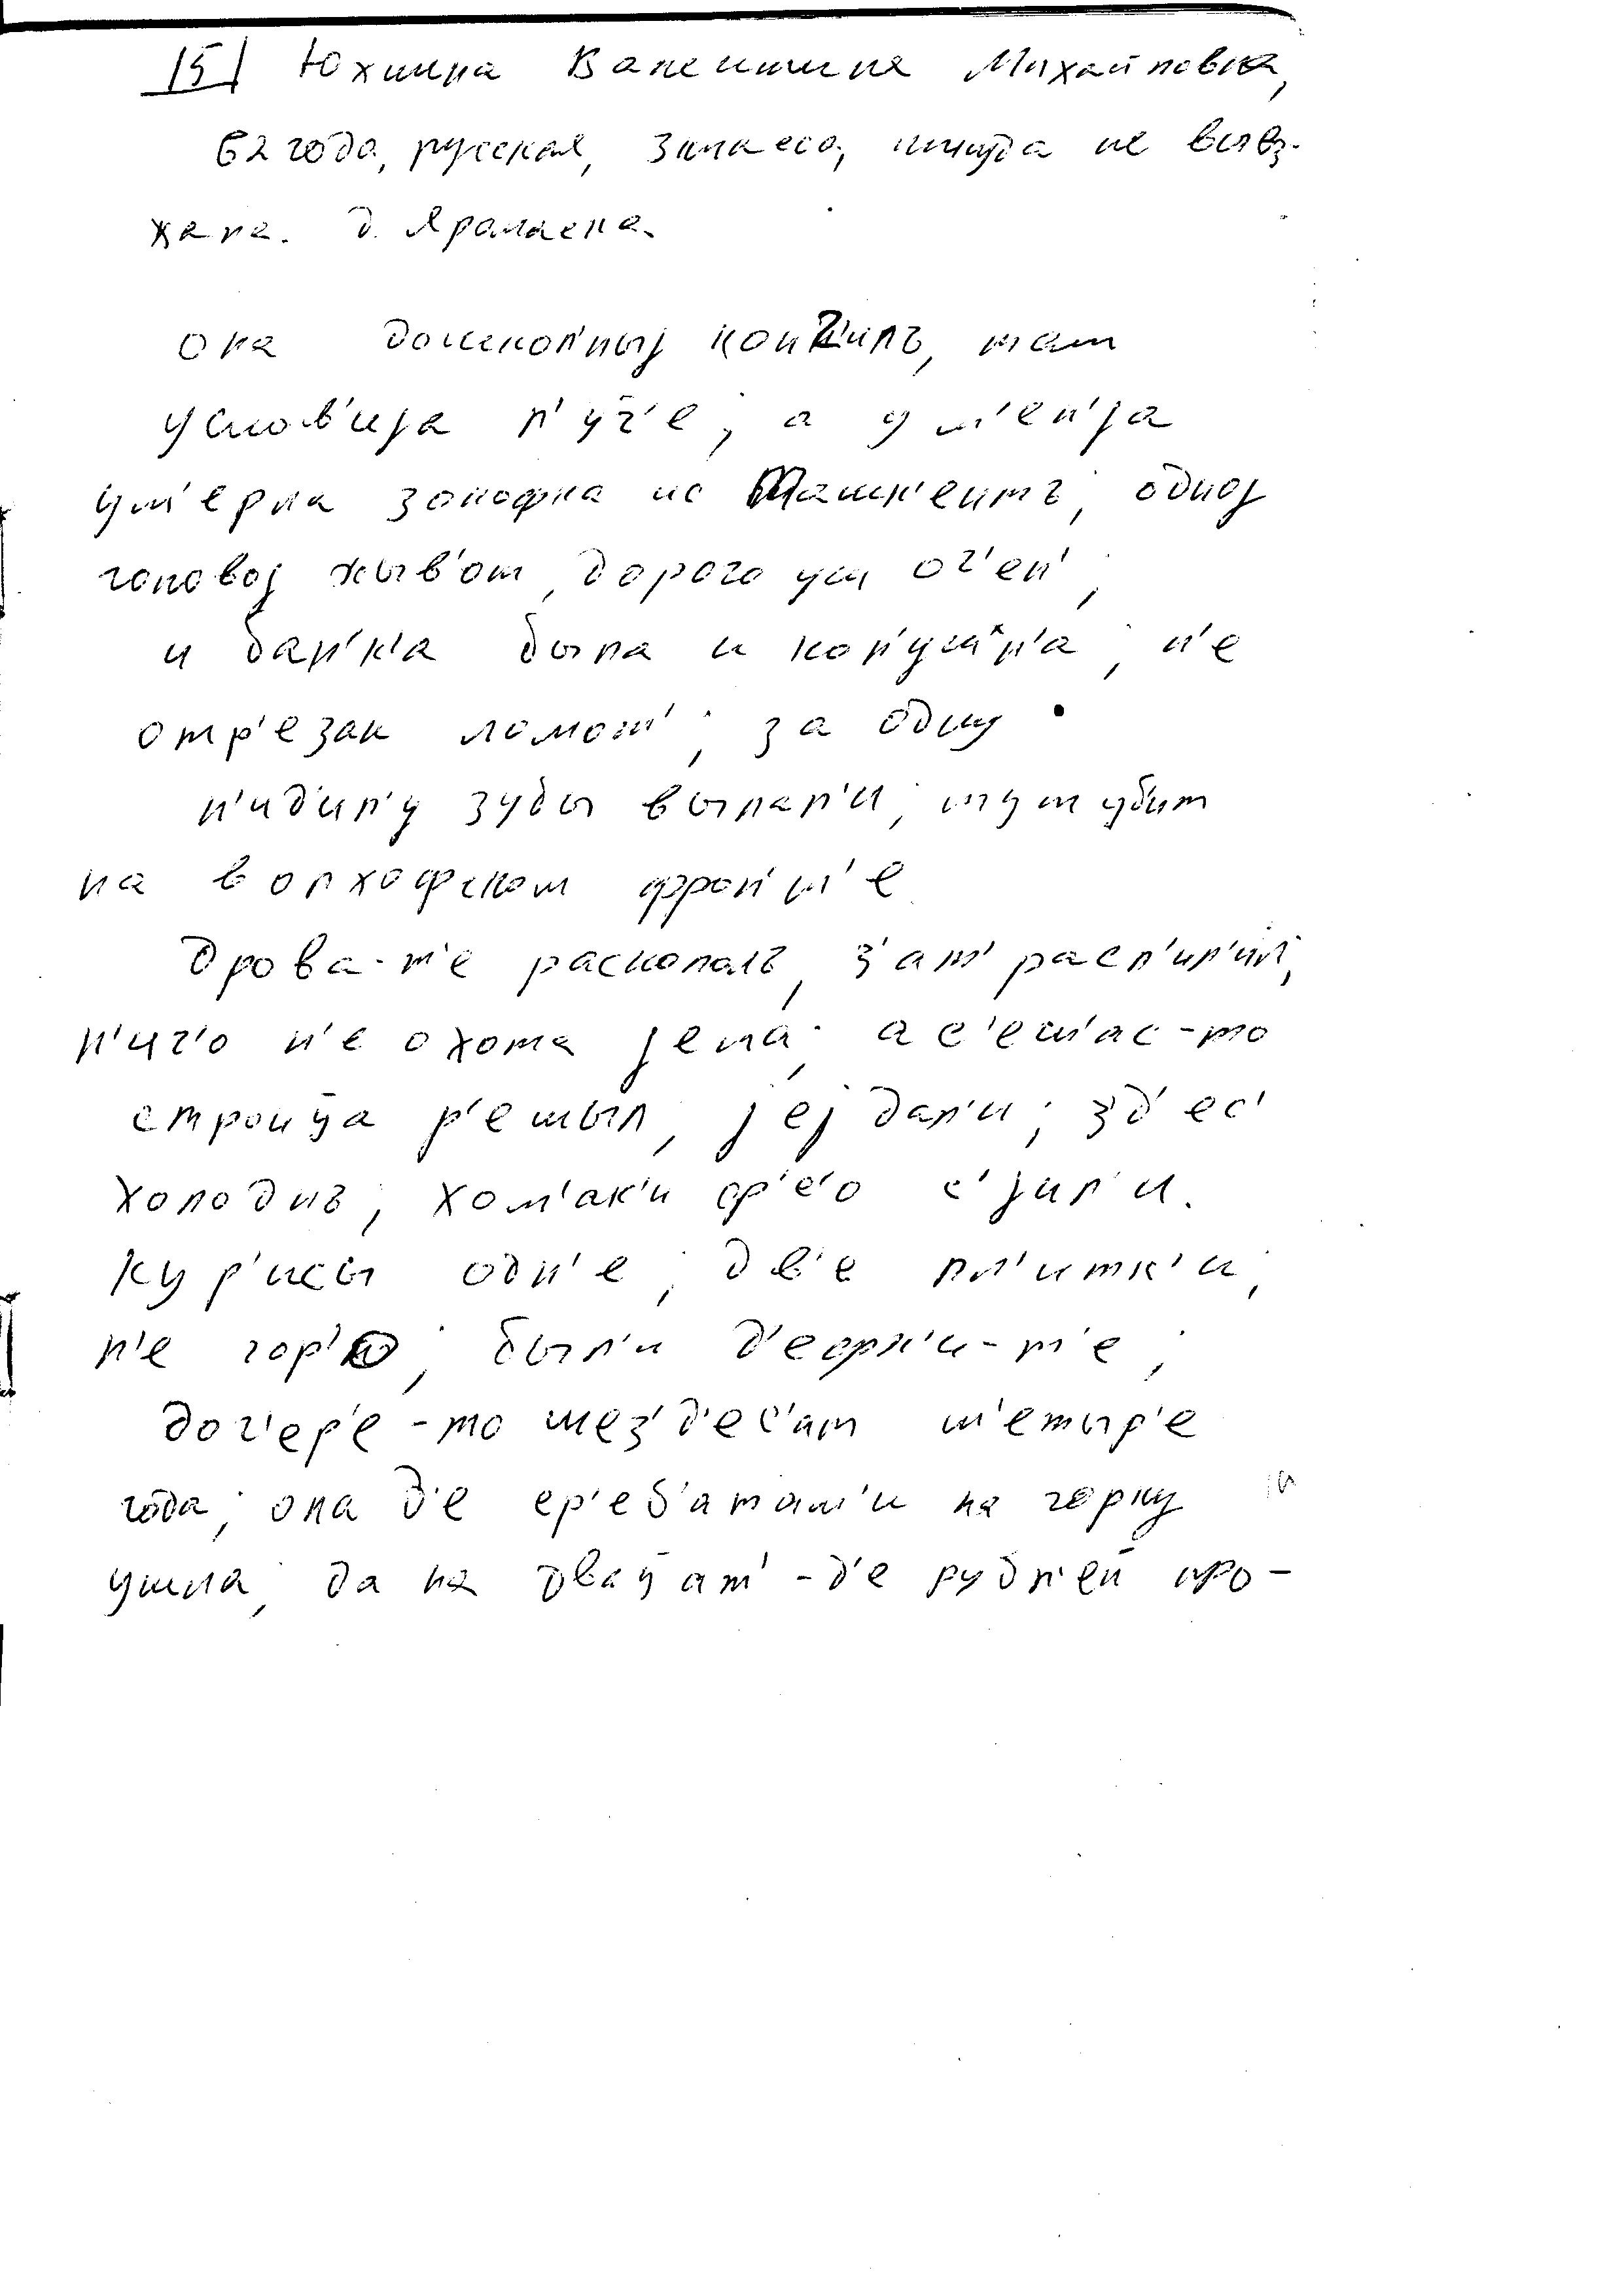 15) Юхнина Валентина Михайловна,
62 года, русская, 3 класса, никуда не выез-
жала. д.
она дошкол'ныј кон'чилъ, там
услов'иjа л'уч'е; а у м'ен'jа
ум'ерла золофка ис Ташк'ентъ; одној
головој жыв'от, дорого уш оч'ен';
и бан'к'а была и кол'ушк'а; н'е
отр'езан ломот'; за одну
н'ид'ил'у зубы выпал'и; тут убит
на волхофском фрон'т'е
дрова-т'е раскололъ, з'ат' расп'ил'ил,
н'ич'о н'е охота јела; а с'ечас-то
строица р'ешыл, јеј дал'и; зд'ес'
холоднъ; хом'ак'и фс'о с'јил'и.
кур'ицы одн'е; дв'е пл'итк'и;
н'е гор'о; был'и д'ефк'и-т'е;
доч'ер'е-то шез'д'ес'ат ч'етыр'е
года; она д'е с р'еб'атам'и на горку
ушла; да на двацат'-д'е рубл'ей про-